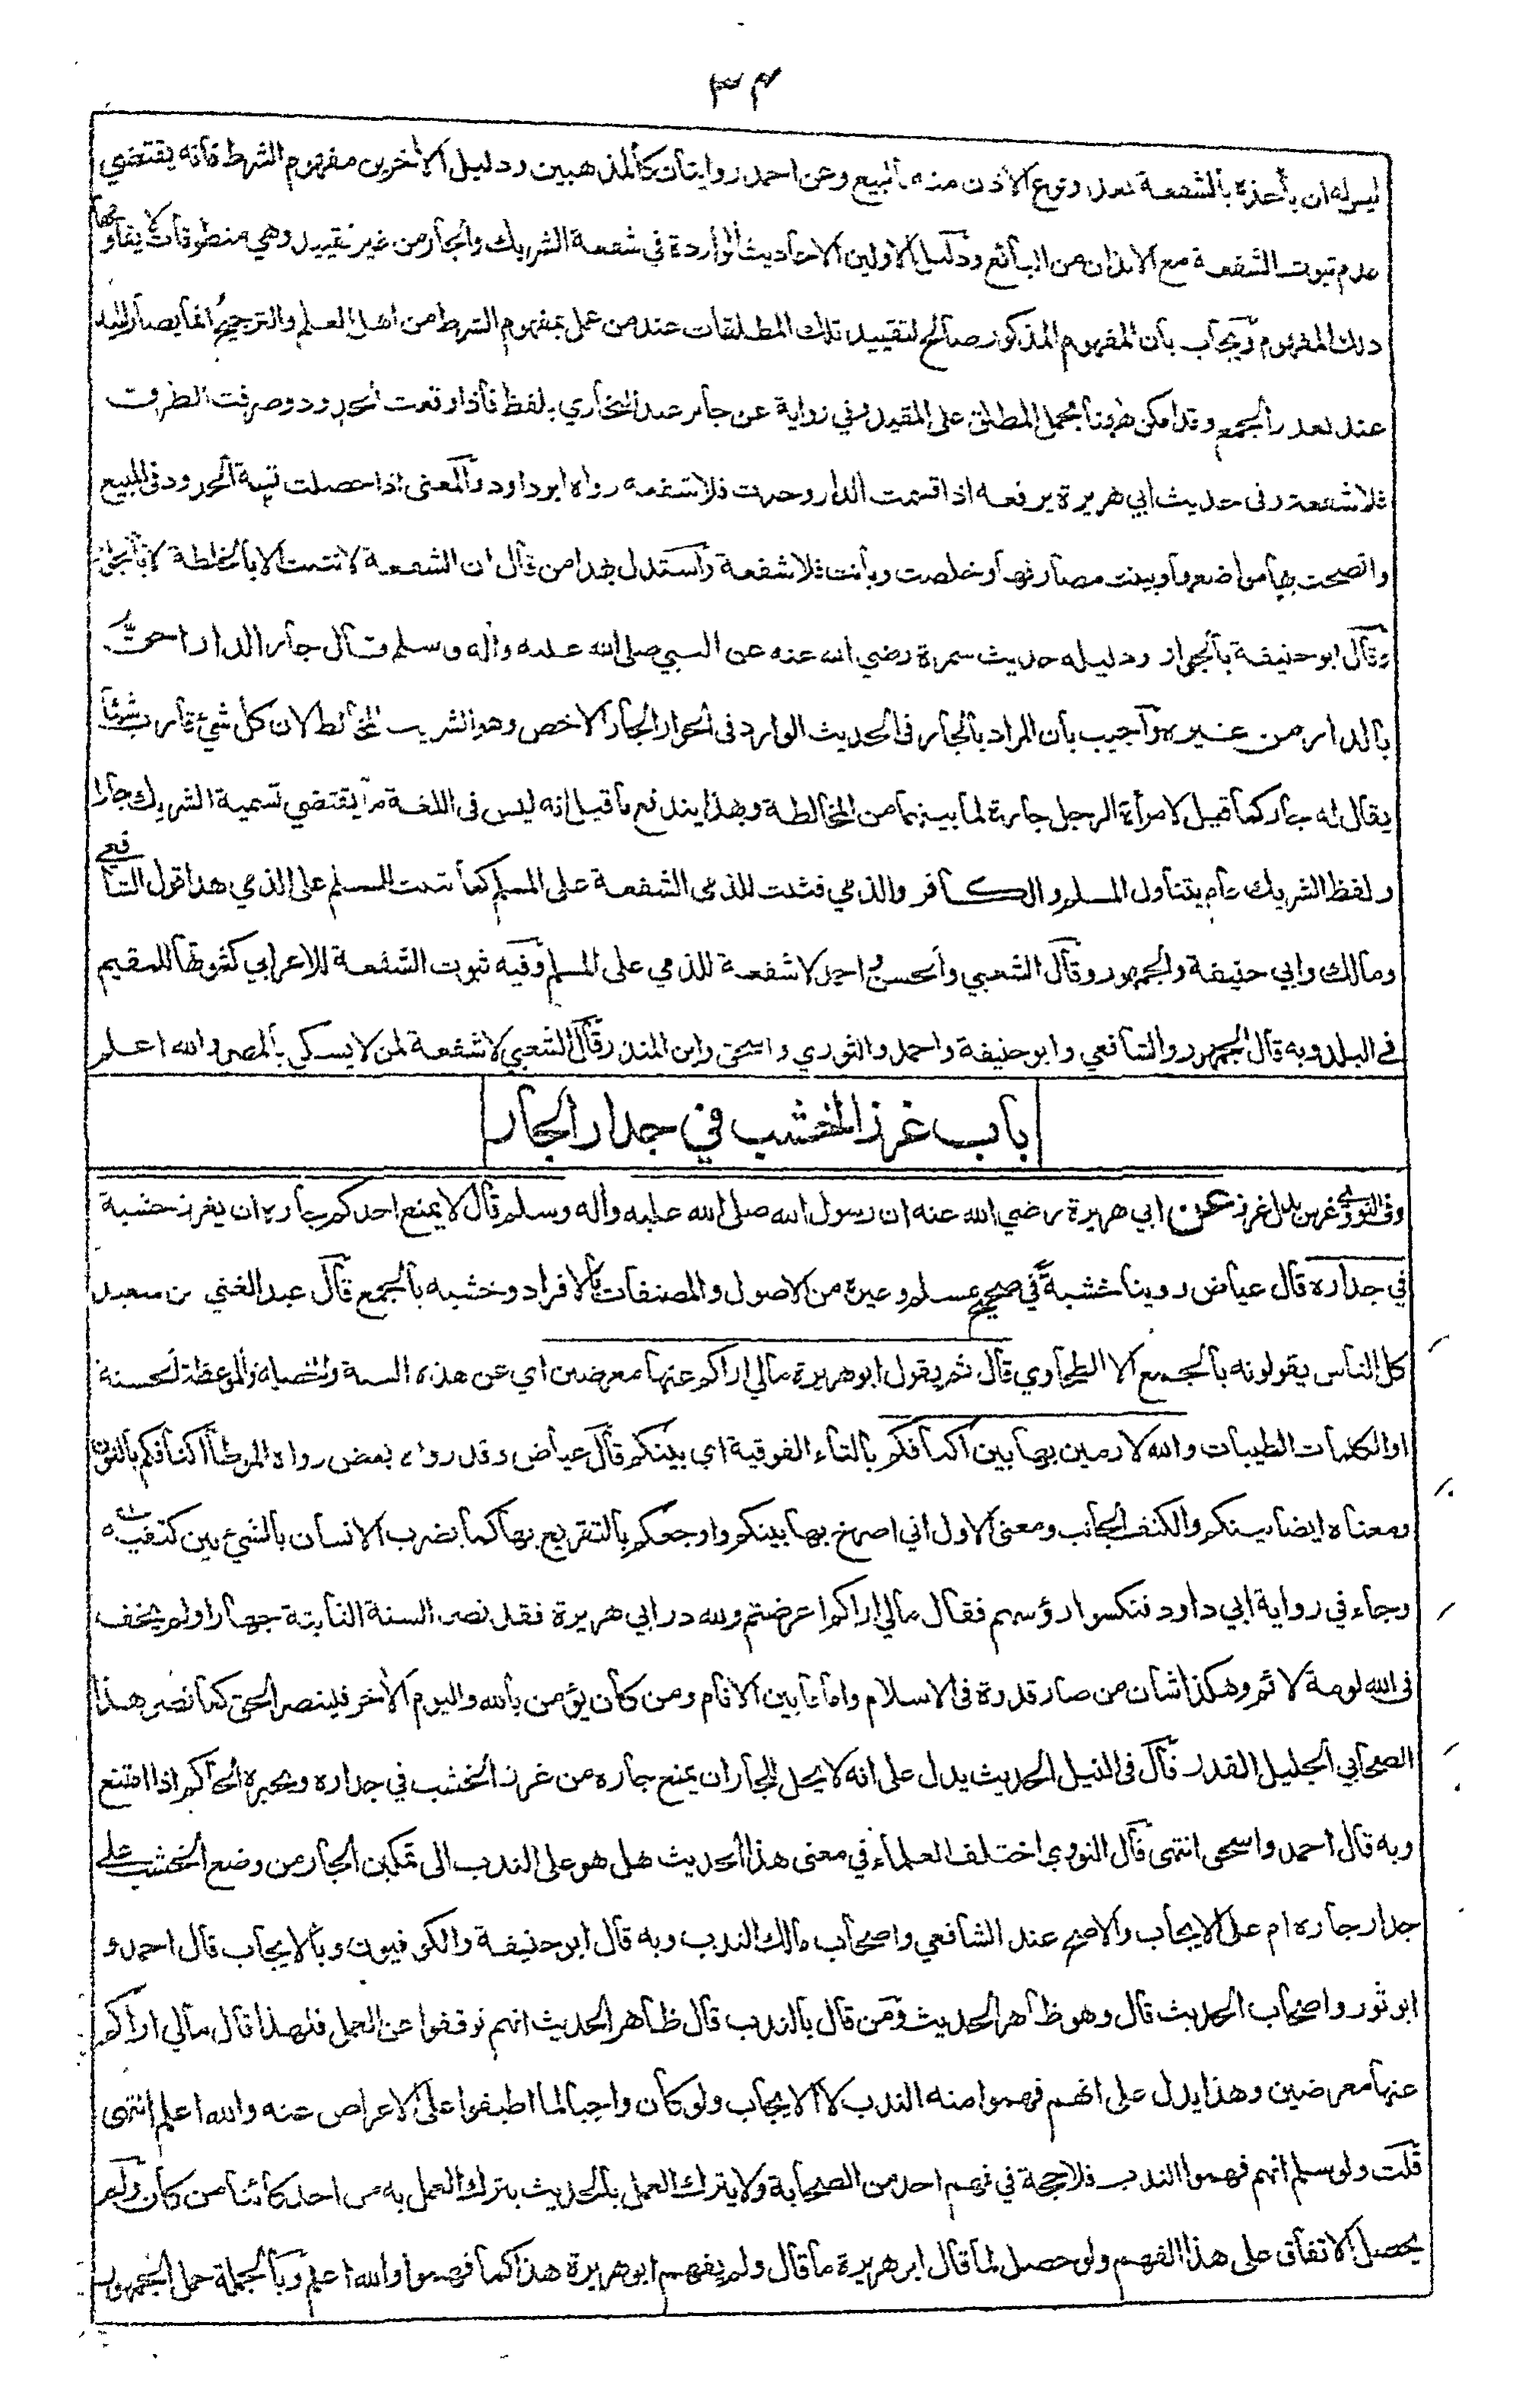 ٣٤
ليس له ان يأخذه بالشفعة بعد وقوع الاذن منه بالبيع وعن احمد روايتان كالمذهبين ودليل الاخرين مفهوم الشرط فانه يقتضي
عدم ثبوت الشفعة مع الايذان من البائع ودليل الاولين الاحاديث الواردة في شفعة الشريك والجار من غير تقييد وهي منطوقات لا يقاومها
ذلك المفهوم ويجاب بان المفهوم المذكور صالح لتقييد تلك المطلقات عند من عمل بمفهوم الشرط من اهل العلم والترجيح انما يصار اليه
عند تعذر الجمع وقد امكن هنا بحمل المطلق على المقيد وفي رواية عن جابر عند البخاري بلفظ فاذا وقعت الحدود وصرفت الطرق
فلا شفعة وفى حديث ابي هريرة يرفعه اذا قسمت الدار وحدت فلا شفعة رواه ابوداود والمعنى اذا حصلت قسمة الحدود فى المبيع
واتضحت بها مواضعها وبينت مصارفها وخلصت وبانت فلا شفعة واستدل بهذا من قال ان الشفعة لا تثبت الا بالخلطة لا بالجوار
وقال ابو حنيفة بالجوار ودليله حديث سمرة رضي الله عنه عن النبي صلى الله عليه وآله وسلم قال جار الدار احق
بالدار من غيره وأجيب بان المراد بالجار فى الحديث الوارد فى الجوار الجار الاخص وهو الشريك المخالط لان كل شيء قارب شيئا
يقال له جار كما قيل لامرأة الرجل جارة لما بينهما من المخالطة وبهذا يندفع ما قيل انه ليس فى اللغة ما يقتضي تسمية الشريك جارا
ولفظ الشريك عام يتناول المسلم والكافر والذمي فثبتت للذمى الشفعة على المسلم كما تثبت للمسلم على الذمي هذا قول الشافعي
ومالك وابي حنيفة والجمهور وقال الشعبي والحسن واحمد لا شفعة للذمي على المسلم وفيه ثبوت الشفعة للاعرابي كثبوتها للمقيم
فى البلد وبه قال الجمهور والشافعي وابو حنيفة واحمد والثوري واسحق وابن المنذر وقال الشعبي لا شفعة لمن لا يسكن بالمصر والله اعلم
باب غرز الخشب في جدار الجار
وفى النووي غرس بدل غرز عن ابي هريرة رضي الله عنه ان رسول الله صلى الله عليه وآله وسلم قال لا يمنع احدكم جاره ان يغرز خشبة
في جداره قال عياض روينا خشبة في صحيح مسلم وغيره من الاصول والمصنفات بالافراد وخشبه بالجمع قال عبد الغني بن سعيد
كل الناس يقولونه بالجمع الا الطحاوي قال ثم يقول ابوهريرة مالي اراكم عنها معرضين اي عن هذه السنة والخصلة والموعظة الحسنة
او الكلمات الطيبات والله لارمين بها بين اكتافكم بالتاء الفوقية اي بينكم قال عياض وقد رواه بعض رواة الموطأ اكنافكم بالنون
ومعناه ايضا بينكم والكنف الجانب ومعنى الاول اني اصرخ بها بينكم واوجعكم بالتقريع بها كما يضرب الانسان بالشيء بين كتفيه
وجاء في رواية ابي داود فنكسوا رؤسهم فقال مالي اراكم اعرضتم ولله در ابي هريرة فقد نصر السنة الثابتة جهارا ولم يخف
فى الله لومة لائم وهكذا شأن من صار قدوة فى الاسلام واماما بين الانام ومن كان يؤمن بالله واليوم الآخر فلينصر الحق كما نصر هذا
الصحابي الجليل القدر قال فى النيل الحديث يدل على انه لا يحل للجار ان يمنع جاره من غرز الخشب في جداره ويجبره الحاكم اذا امتنع
وبه قال احمد واسحق انتهى قال النووي اختلف العلماء في معنى هذا الحديث هل هو على الندب الى تمكين الجار من وضع الخشب على
جدار جاره ام على الايجاب والاصح عند الشافعي واصحاب مالك الندب وبه قال ابو حنيفة والكوفيون وبالايجاب قال احمد و
ابو ثور واصحاب الحديث قال وهو ظاهر الحديث ومن قال بالندب قال ظاهر الحديث انهم توقفوا عن العمل فلهذا قال مالي اراكم
عنها معرضين وهذا يدل على انهم فهموا منه الندب لا الايجاب ولو كان واجبا لما اطبقوا على الاعراض عنه والله اعلم انتهى
قلت ولو سلم انهم فهموا الندب فلا حجة في فهم احد من الصحابة ولا يترك العمل بالحديث بترك العمل به من احد كائنا من كان ولم
يحصل الاتفاق على هذا الفهم ولو حصل لما قال ابو هريرة ما قال ولم يفهم ابو هريرة هذا كما فهموا والله اعلم وبالجملة حمل الجمهور